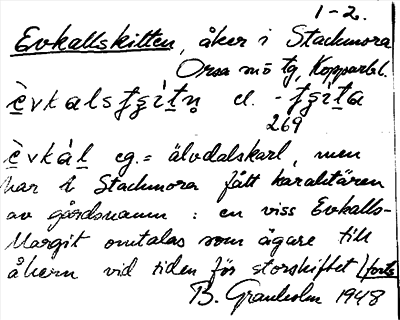 1-2.
Evkallskitten, åker i Stackmora
Orsa sn o tg, Kopparbl.
ὲvkalsʈʂìtn̥ el. -ʈʂìta
269
ὲvkàl eg. = älvdalskarl, men
har i Stackmora fått karaktären
av gårdsnamn : en viss Evkalls-
Margit omtalas som ägare till
åkern vid tiden för storskiftet /forts
B. Granholm 1948